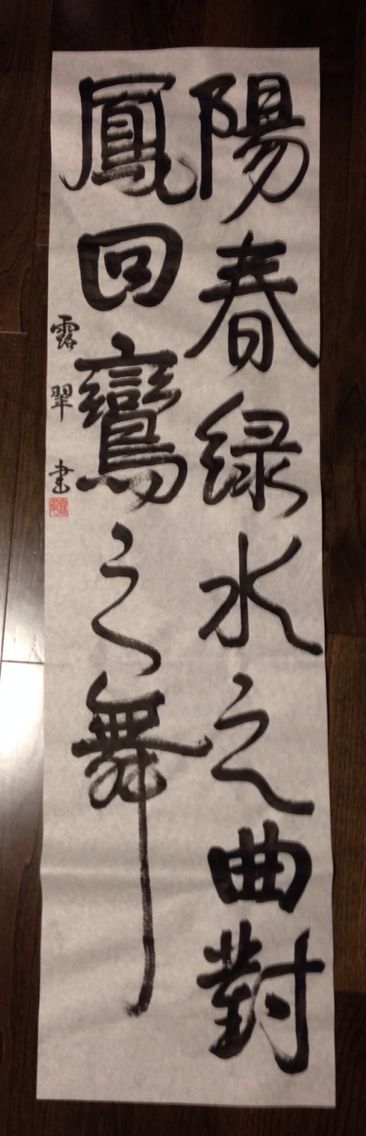 陽春緑水之曲對
鳳回鸞之舞
露翠書